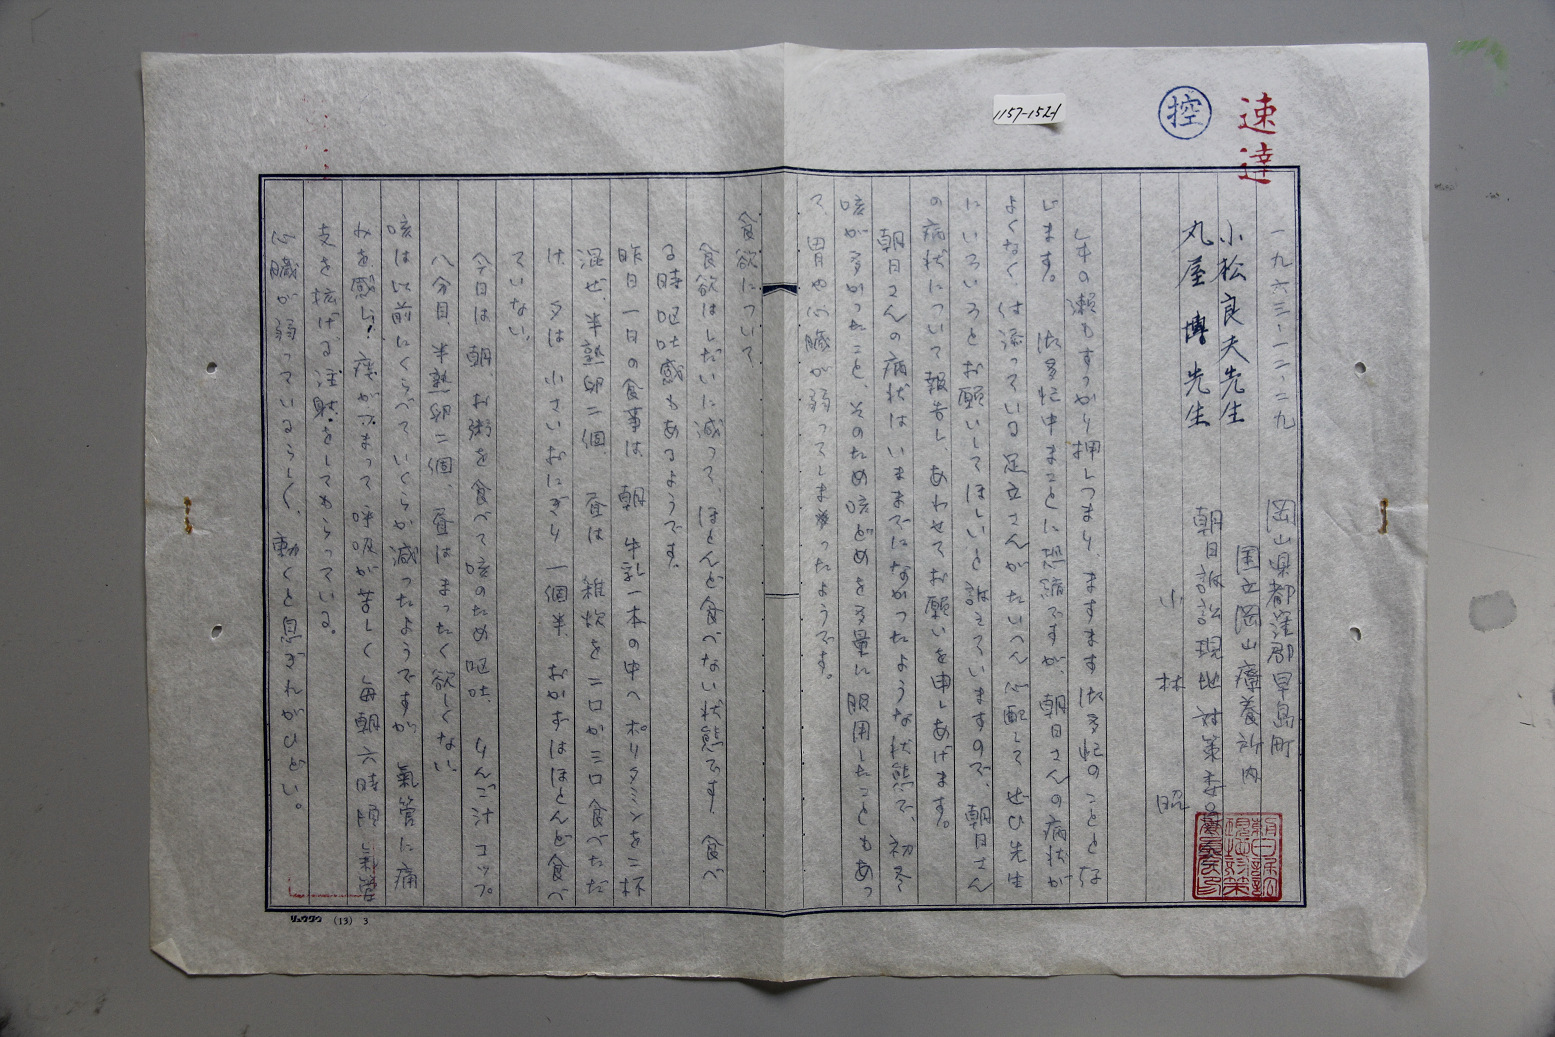 速達
控
1157-1521
一九六三・一二・二九
小松良夫先生
丸屋 博先生
岡山県都窪郡早島町
国立岡山療養所内
朝日訴訟現地対策委員
小林 昭
年の瀬もすっかり押しつまり、ますます御多忙のこととな
じます。御多忙中まことに恐縮ですが、朝日さんの病状が
よくなく、付添っている足立さんがたいへん心配して ぜひ先生
にいろいろとお願いしてほしいと訴えていますので、朝日さん
の病状について報告し、あわせてお願いを申しあげます。
朝日さんの病状はいままでになかったような状態で、初冬
咳が多かったこと、そのため咳どめを多量に服用したこともあっ
て、胃や心臓が弱ってしまったようです。
食欲について
食欲はしだいに減って、ほとんど食べない状態です、食べ
る時嘔吐感もあるようです。
昨日一日の食事は 朝 牛乳一本の中へ ポリタミンを二杯
混ぜ、半熟卵二個、昼は 雑炊を 二口か三口食べただ
け、夕は 小さいおにぎり 一個半、おかずはほとんど食べ
ていない、
今日は、朝、お粥を食べて咳のため嘔吐、りんご汁 コップ
八分目、半熟卵二個、昼はまったく欲しくない
咳は以前にくらべていくらか減ったようですが、氣管に痛
みを感じ、痰がつまって、呼吸が苦しく毎朝六時頃 氣管
支を拡げる注射をしてもらっている。
心臓が弱っているらしく、動くと息ぎれがひどい。
リュウワケ (13) 3